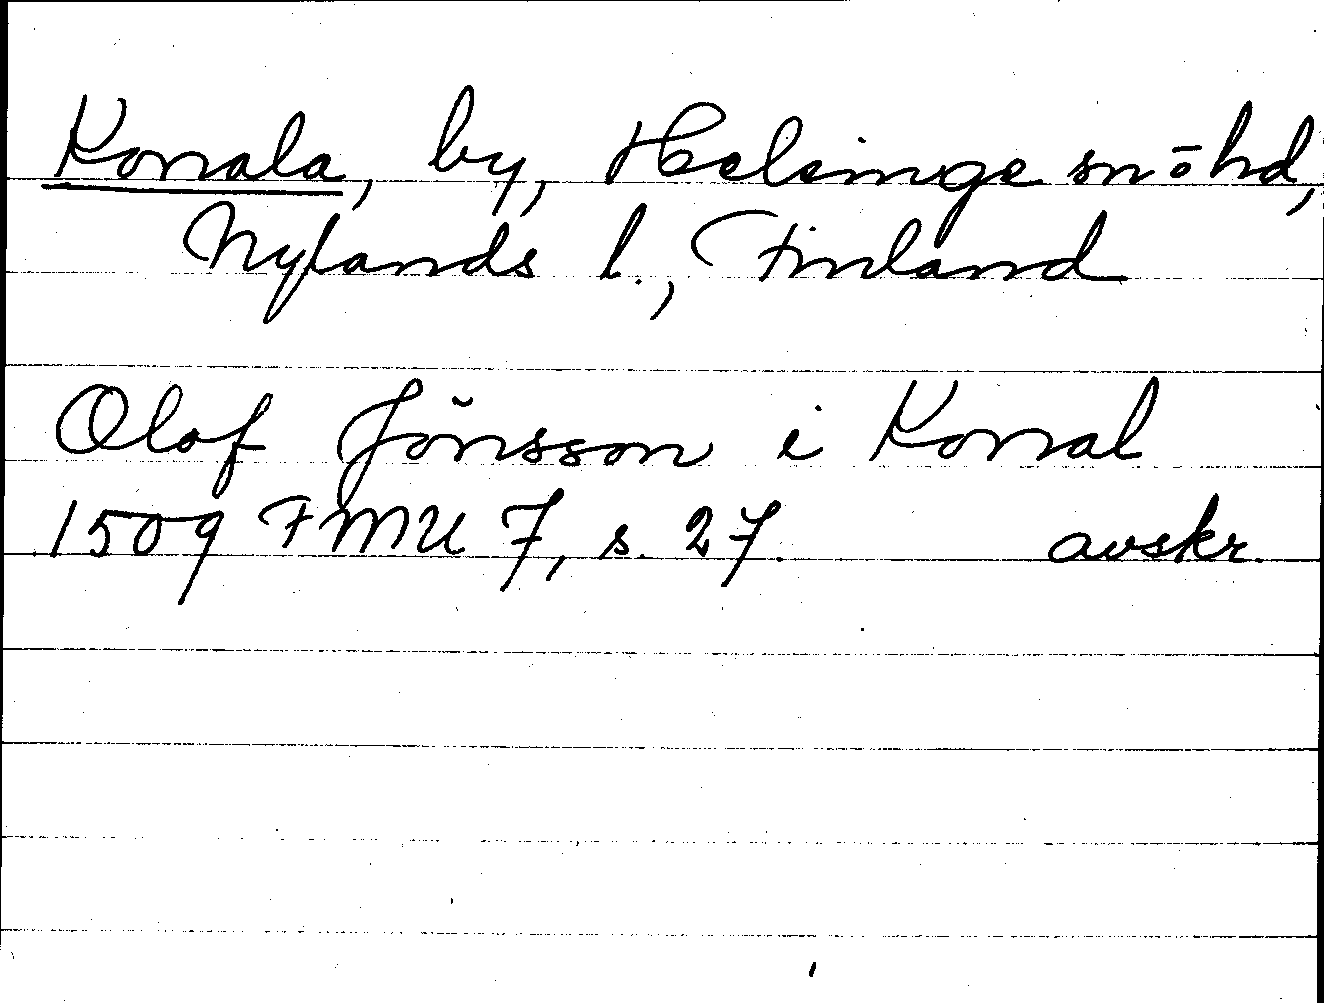 Konala, by, Helsinge sn o hd,
Nylands l., Finland
Olof Jönsson i Konal
1509 FMU 7, s. 27. avskr.